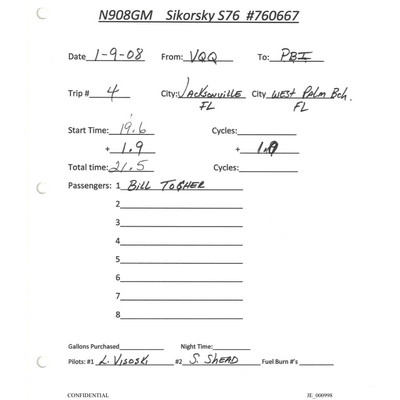 N908GM Sikorsky S76 #760667
Date 1-9-08 From: VQQ To: PBI
Trip # 4 City: Jacksonville FL City West Palm Bch. FL
Start Time: 19.6 Cycles:
+ 1.9 +
Total time: 21.5 Cycles:
Passengers: 1 Bill
2
3
4
5
6
7
8
Gallons Purchased Night Time:
Pilots: #1 L. Visoski #2 S. Shead Fuel Burn #'s
CONFIDENTIAL JE_000998